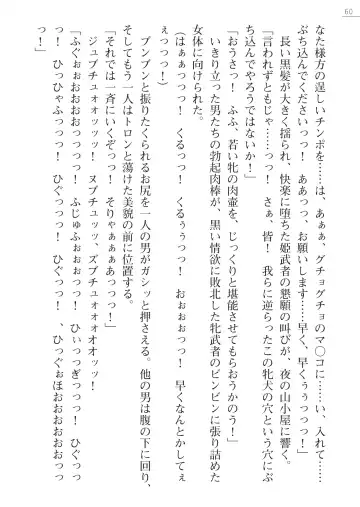 60
なた様方の逞しいチンポを……は、あぁぁ、グチョグチョのマ〇コに……、入れて……
ぶち込んでくださいっっ！　ああっっ、お願いします……早く、早くぅぅっっっっ！」
長い黒髪が大きく揺られ、快楽に堕ちた姫武者の懇願の叫びが、夜の山小屋に響く。
「言われずともじゃ――っっ！　さぁ、皆！　我らに逆らったこの牝犬の穴という穴にぶ
ち込んでやろうではないか！」
「おうさっ！　ふふ、若い牝の肉壺を、じっくりと堪能させてもらおうかのう！」
いきり立った男たちの勃起肉棒が、黒い情欲に敗北した牝武者のピンピンに張り詰めた
女体に向けられた。
（はぁぁっっっ！　くるっっ！　くるぅぅっっ！　おぉぉぉっっ！　早くなんとかしてぇ
ぇっっっ！）
プンプンと振りたくられるお尻を一人の男がガシッと押さえる。他の男は腹の下に回り、
そしてもう一人はトロンと蕩けた美貌の前に位置する。
「それでは一斉にいくぞっっ！　そりゃぁぁぁあっっっ！」
ジュブチュォォォッッッ！　ヌプチュッッ、ズブチュォォォオオッッ！
「ふぐぉぉおおおおっっっっっ！　ふじゅふぉぉぉっっ！　ひぃっっぎっっっ！　ひぐっっ
っ！　ひっひゃふっっっ！　ひぐっっっ！　、ひぐっっっ！　、ひっぐぉほおおおおおおっっ
っ！」